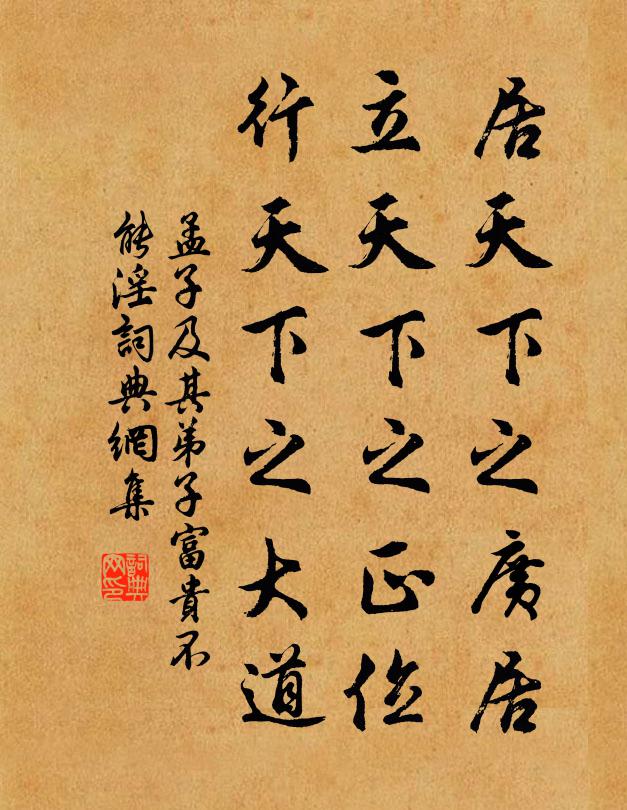 居天下之廣居
立天下之正位
行天下之大道
孟子及其弟子富貴不
能淫詞典網集
詞典
网印